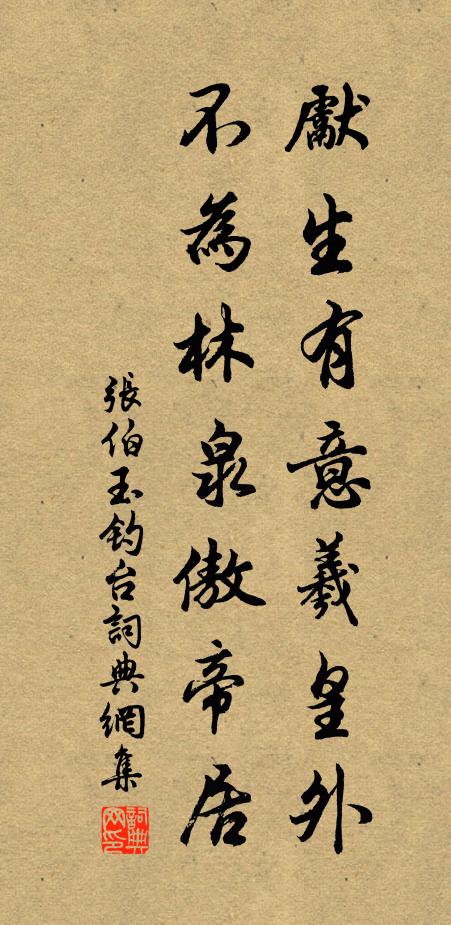 獻生有意羲皇外
不為林泉傲帝居
張伯玉釣台詞典網集
詞典網印